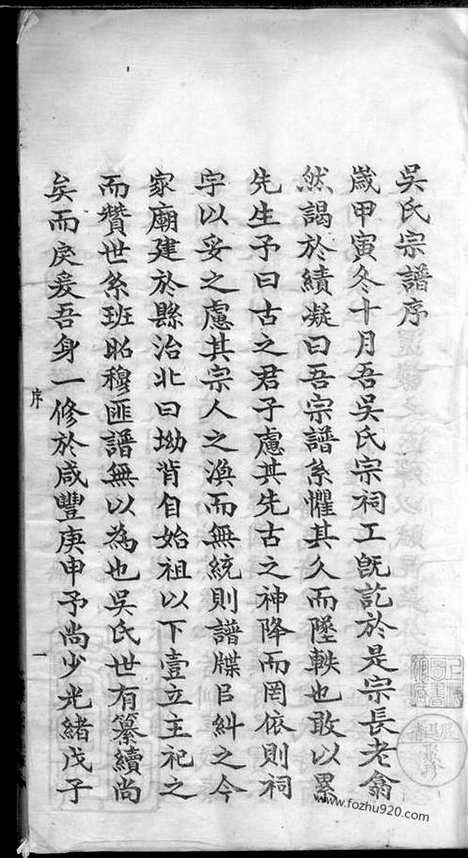 吳氏宗譜序
歲甲寅冬十月吾吳氏宗祠工既訖於是宗長老翕
然謁於績凝曰吾宗譜系懼其久而墜軼也敢以累
先生予曰古之君子慮其先古之神降而罔依則祠
宇以妥之慮其宗人之渙而無統則譜牒㠯糾之今
家廟建於縣治北曰坳背自始祖以下壹立主祀之
而贊世系班昭穆匪譜無以為也吳氏世有纂續尚
矣而戾爰吾身一修於咸豐庚申予尚少光緒戊子
序
一
www.fozhu920.com